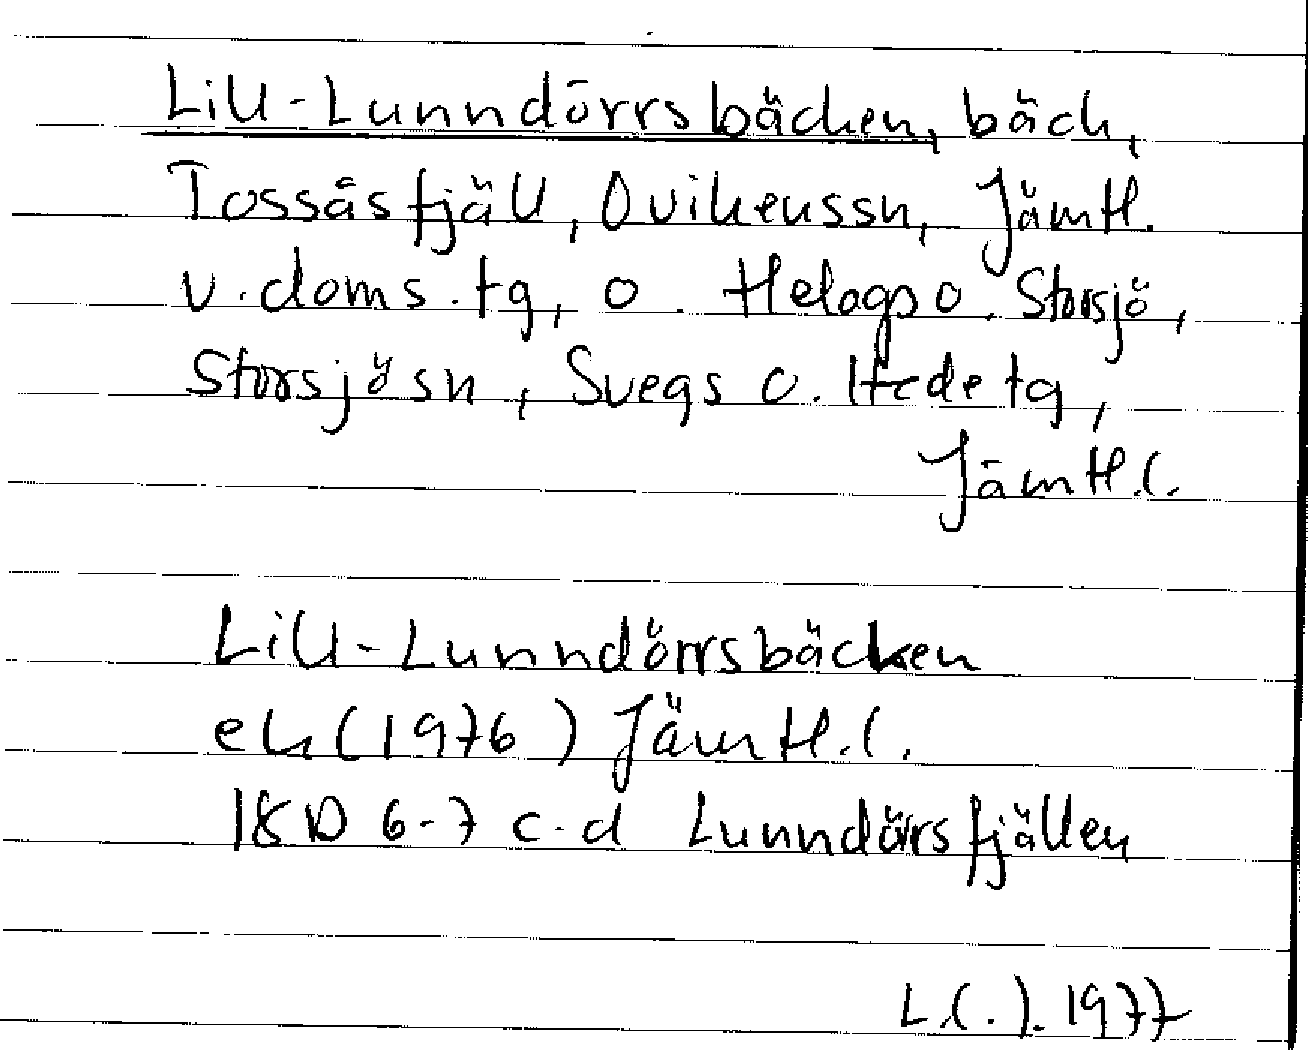 Lill-Lunndörrsbäcken, bäck,
Tossåsfjäll, Ovikenssn, Jämtl.
v. doms. tg, o. Helags o. Storsjö,
Storsjö sn, Svegs o. Hede tg,
Jämtl.l.
Lill-Lunndörrsbäcken
ek (1976) Jämtl.l.
18D 6-7 c-d Lunndörrsfjällen
1977